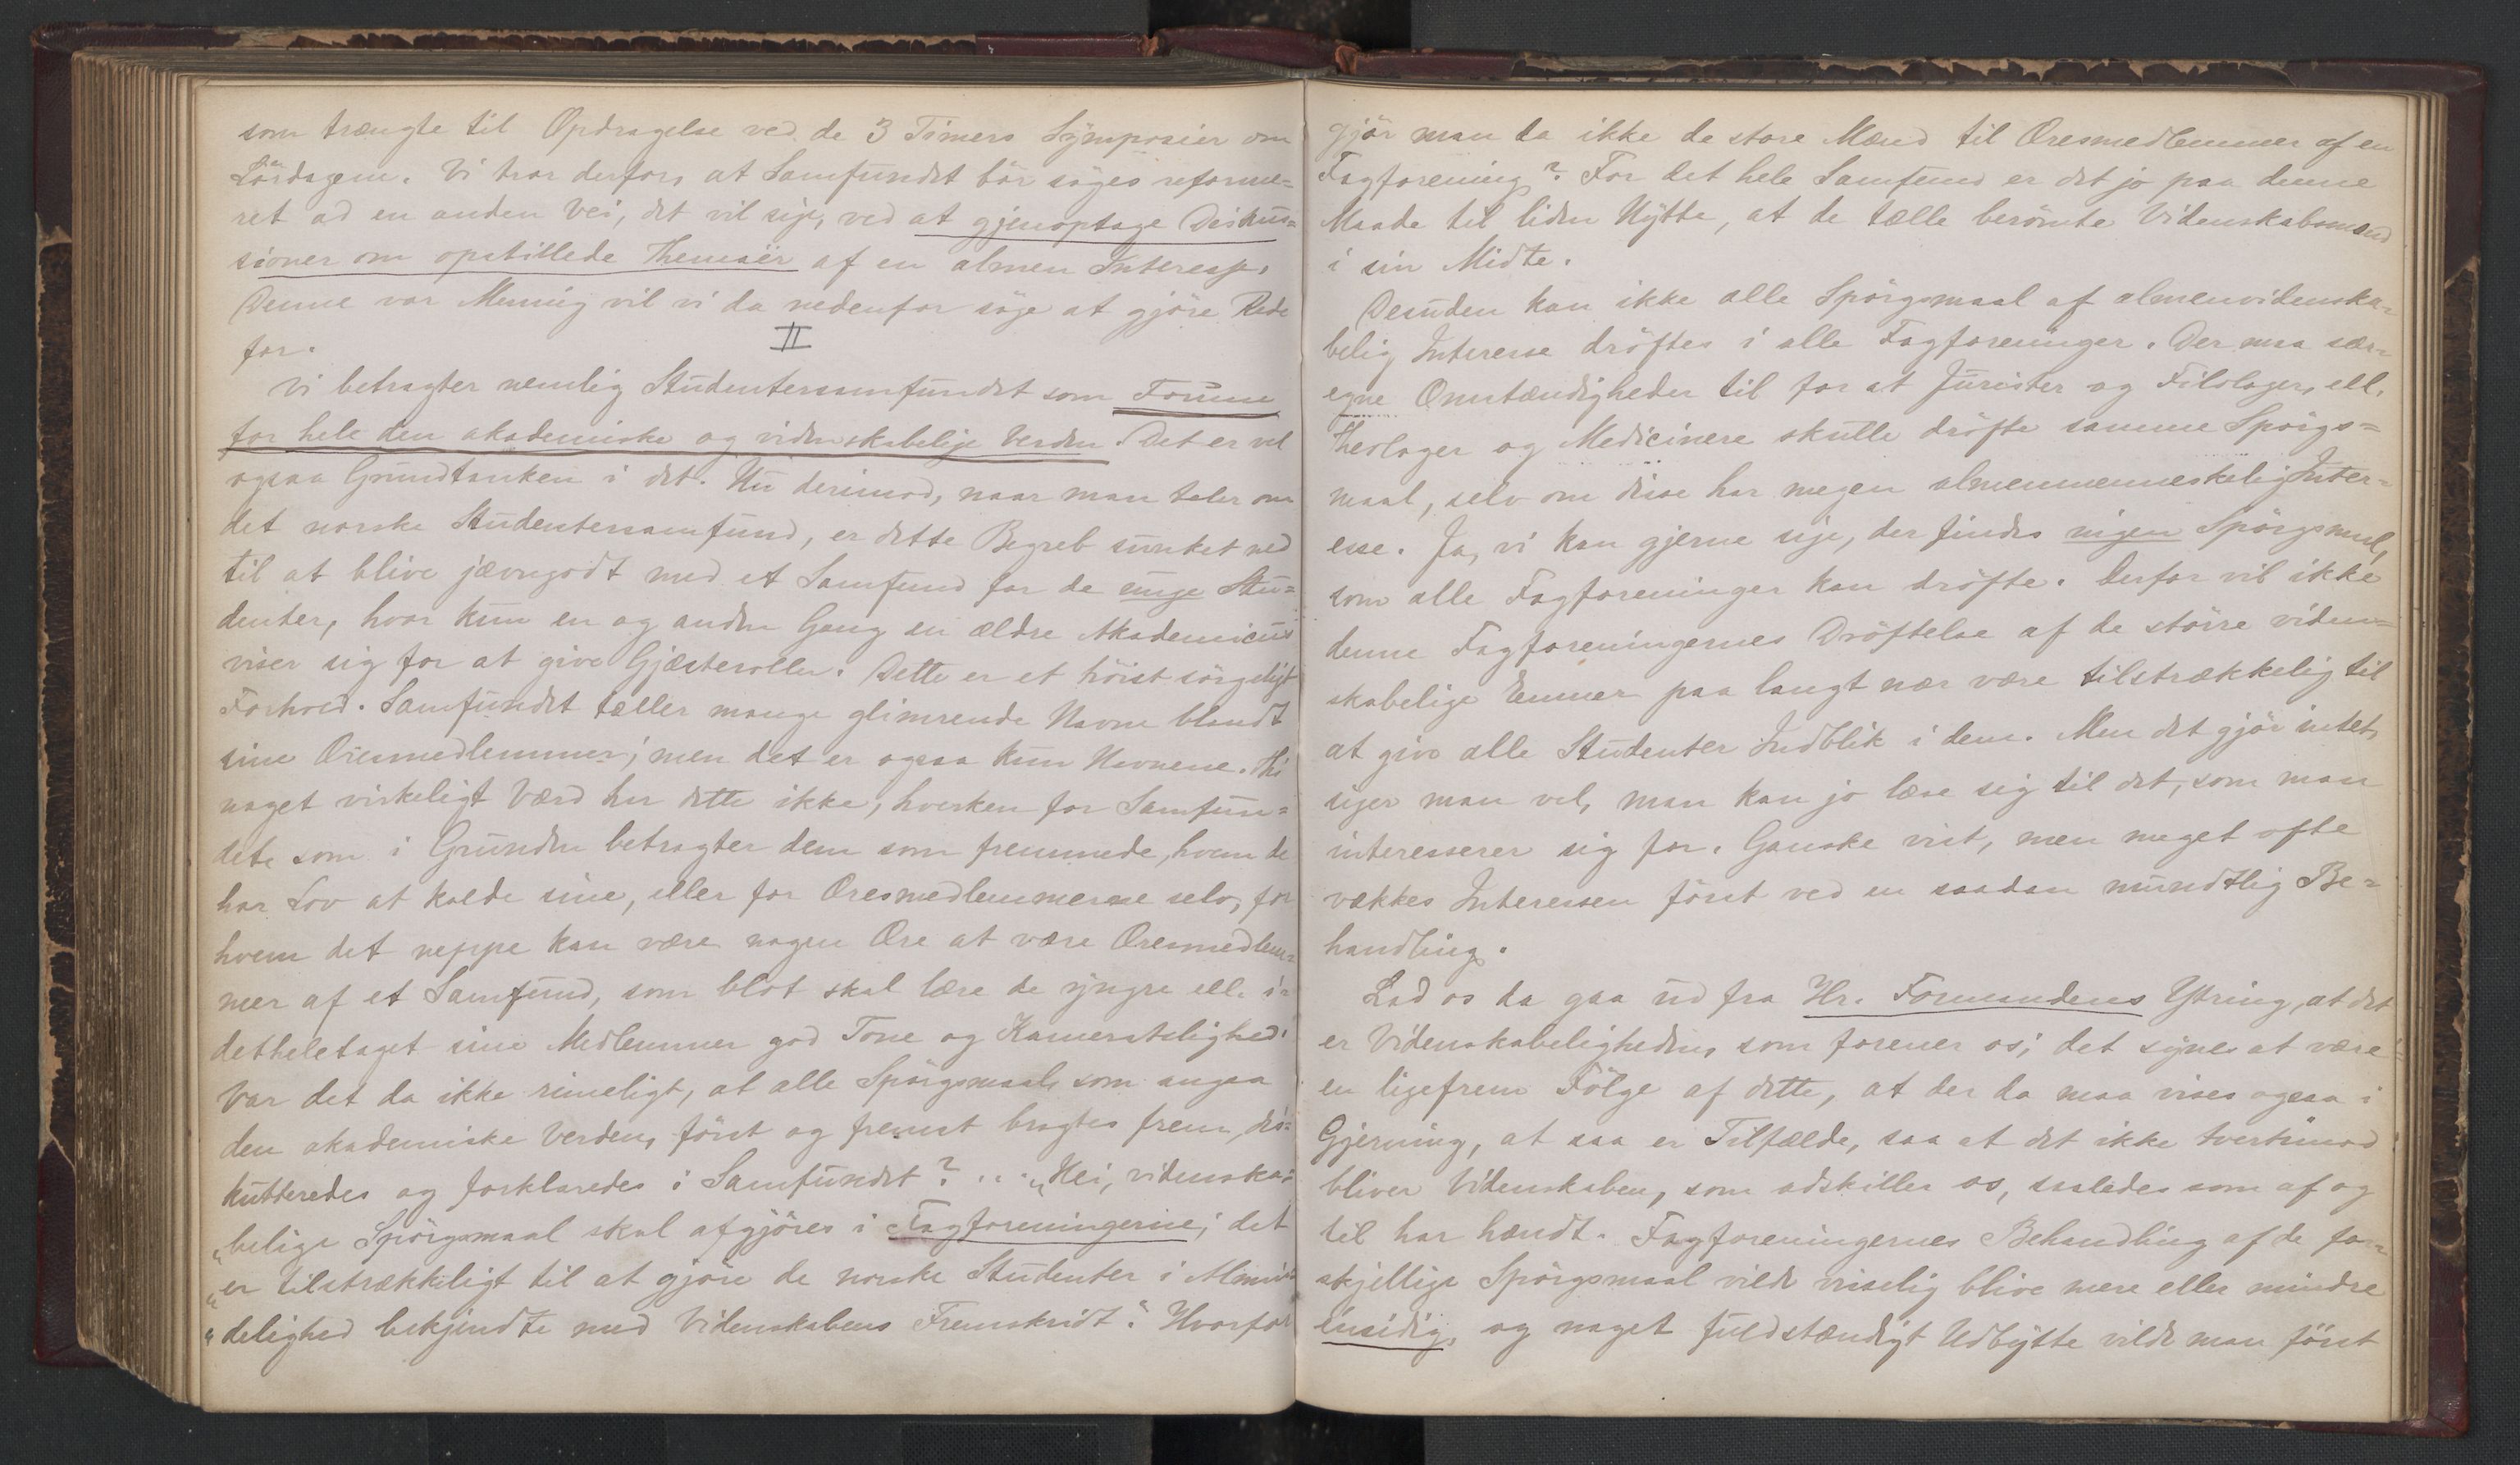 som trængte til Opdragelse ved de 3 Timers Symposier om
Lördagene. Vi tror derfor, at Samfundet bör söges reforme=
ret ad en anden Vei, det vil sige, ved at gjenoptage Diskus=
sioner om opstillede Themaer af en almen Interesse.
Denne vor Mening vil vi da nedenfor söge at gjöre Rede
for.
II
Vi betragter nemlig Studentersamfundet som Forum
for hele den akademiske og videnskabelige Verden. Det er vel
ogsaa Grundtanken i det. Nu derimod, naar man taler om
det norske Studentersamfund, er dette Begreb sunket ned
til at blive jævngodt med et Samfund for de unge Stu=
denter, hvor kun en og anden Gang en ældre Akademicus
viser sig for at give Gjæsteroller. Dette er et höist sörgeligt
Forhold. Samfundet tæller mange glimrende Navne blandt
sine Æresmedlemmer; men det er ogsaa kun Navnene. Thi
noget virkeligt Værd har dette ikke, hverken for Samfun=
det, som i Grunden betragter dem som fremmede, hvem de
har Lov at kalde sine, eller for Æresmedlemmerne selv, for
hvem det neppe kan være nogen Ære at være Æresmedlem=
mer af et Samfund, som blot skal lære de yngre ell. i=
detheletaget sine Medlemmer god Tone og Kameratslighed.
Var det da ikke rimeligt, at alle Spörgsmaal, som angaa
den akademiske Verden, först og fremst bragtes frem, dis=
kutteredes og forklaredes i Samfundet? ... „Nei, videnska=
„belige Spörgsmaal skal afgjöres i Fagforeningerne; det
„er tilstrækkeligt til at gjöre de norske Studenter i Almin=
„delighed bekjendte med Videnskabens Fremskridt“. Hvorfor
gjör man da ikke de store Mænd til Æresmedlemmer af en
Fagforening? For det hele Samfund er det jo paa denne
Maade til liden Nytte, at de tælle berömte Videnskabsmænd
i sin Midte.
Desuden kan ikke alle Spörgsmaal af almenvidenska=
belig Interesse dröftes i alle Fagforeninger. Der maa sær=
egne Omstændigheder til for at Jurister og Filologer, ell.
Theologer og Medicinere skulle dröfte samme Spörgs=
maal, selv om disse har megen almenmenneskelig Inter=
esse. Ja, vi kan gjerne sige, der findes ingen Spörgsmaal,
som alle Fagforeninger kan dröfte. Derfor vil ikke
denne Fagforeningernes Dröftelse af de större viden=
skabelige Emner paa langt nær være tilstrækkelig til
at give alle Studenter Indblik i dem. Men det gjör intet,
siger man vel, man kan jo læse sig til det, som man
interesserer sig for. Ganske vist, men meget ofte
vækkes Interessen först ved en saadan mundtlig Be=
handling.
Lad os da gaa ud fra Hr. Formandens Ytring, at det
er Videnskabeligheden, som forener os; det synes at være
en ligefrem Fölge af dette, at der da maa vises ogsaa i
Gjerning, at saa er Tilfælde, saa at det ikke tvertimod
bliver Videnskaben, som adskiller os, saaledes som af og
til har hændt. Fagforeningernes Behandling af de for=
skjellige Spörgsmaal vilde visselig blive mere eller mindre
ensidig, og noget fuldstændigt Udbytte vilde man först